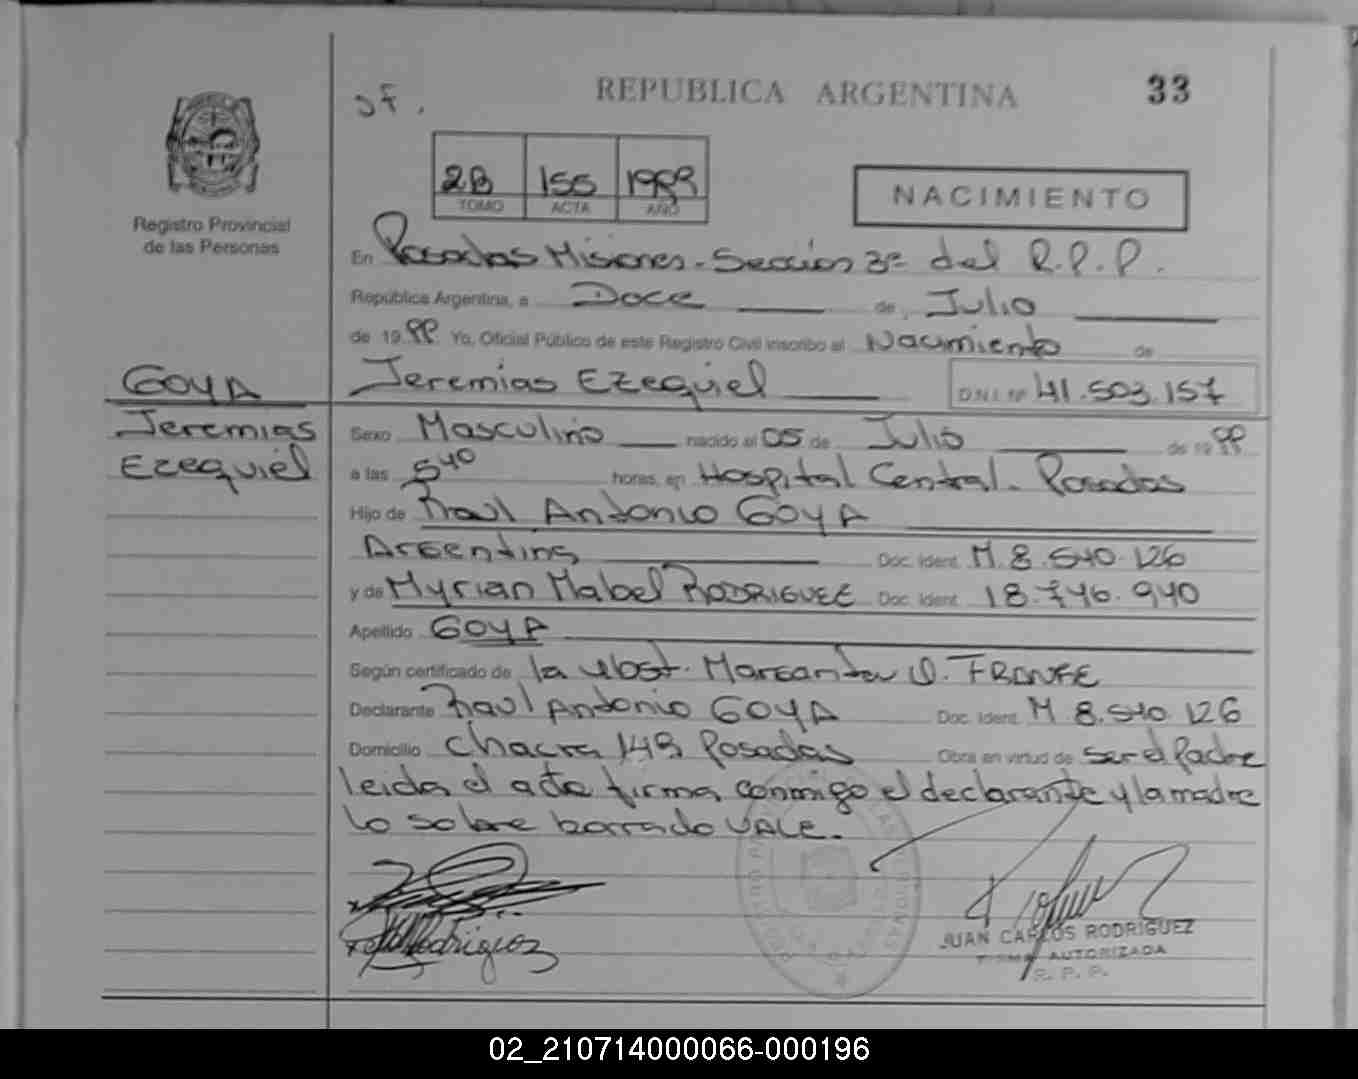 REPUBLICA ARGENTINA
33
2B 155 1999
TOMO ACTA AÑO
NACIMIENTO
Registro Provincial
de las Personas
En Posadas Misiones - Sección 3ª del R.P.P.
República Argentina, a Doce de Julio
de 19 99 Yo, Oficial Público de este Registro Civil inscribo el Nacimiento de
GOYA
Jeremias Ezequiel
Jeremias Ezequiel D.N.I. Nº 41.503.157
Sexo Masculino nacido el 05 de Julio de 19 99
a las 5 40 horas, en Hospital Central - Posadas
Hijo de Raul Antonio GOYA
Argentina Doc. Ident. M. 8.540.126
y de Myrian Mabel RODRIGUEZ Doc. Ident. 18.746.940
Apellido GOYA
Según certificado de la obst. Margarita
Declarante Raul Antonio GOYA Doc. Ident. M 8.540.126
Domicilio Chacra 149 Posadas Obra en virtud de ser el Padre
leida el acta firma conmigo el declarante y la madre
lo sobre borrado VALE.
Rodriguez
JUAN CARLOS RODRIGUEZ
FIRMA AUTORIZADA
R. P. P.
02_210714000066-000196